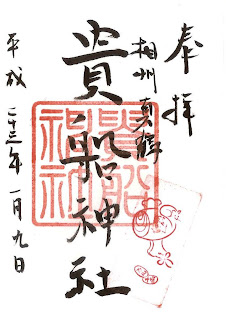 奉拝
相州真鶴
貴船神社
平成二十三年一月九日
貴船神社